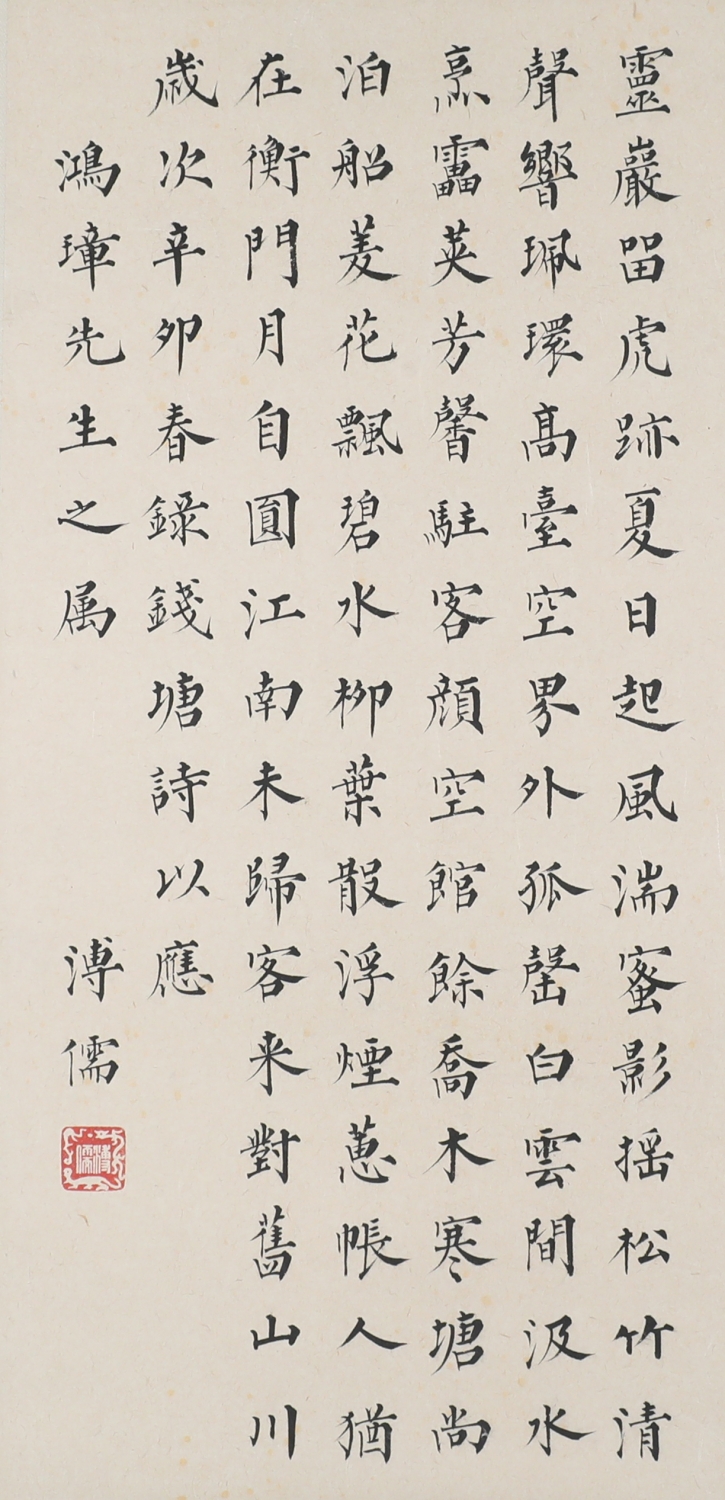 靈巖畱虎跡夏日起風湍蜜影揺松竹清
聲響珮環髙臺空界外孤罄白雲間汲水
烹靁英芳馨駐客顔空館餘喬木寒塘尚
泊船菱花飄碧水柳葉散浮煙蕙帳人猶
在衡門月自圓江南未歸客来對舊山川
歲次辛卯春錄錢塘詩以應
鴻璋先生之属
溥儒
溥儒